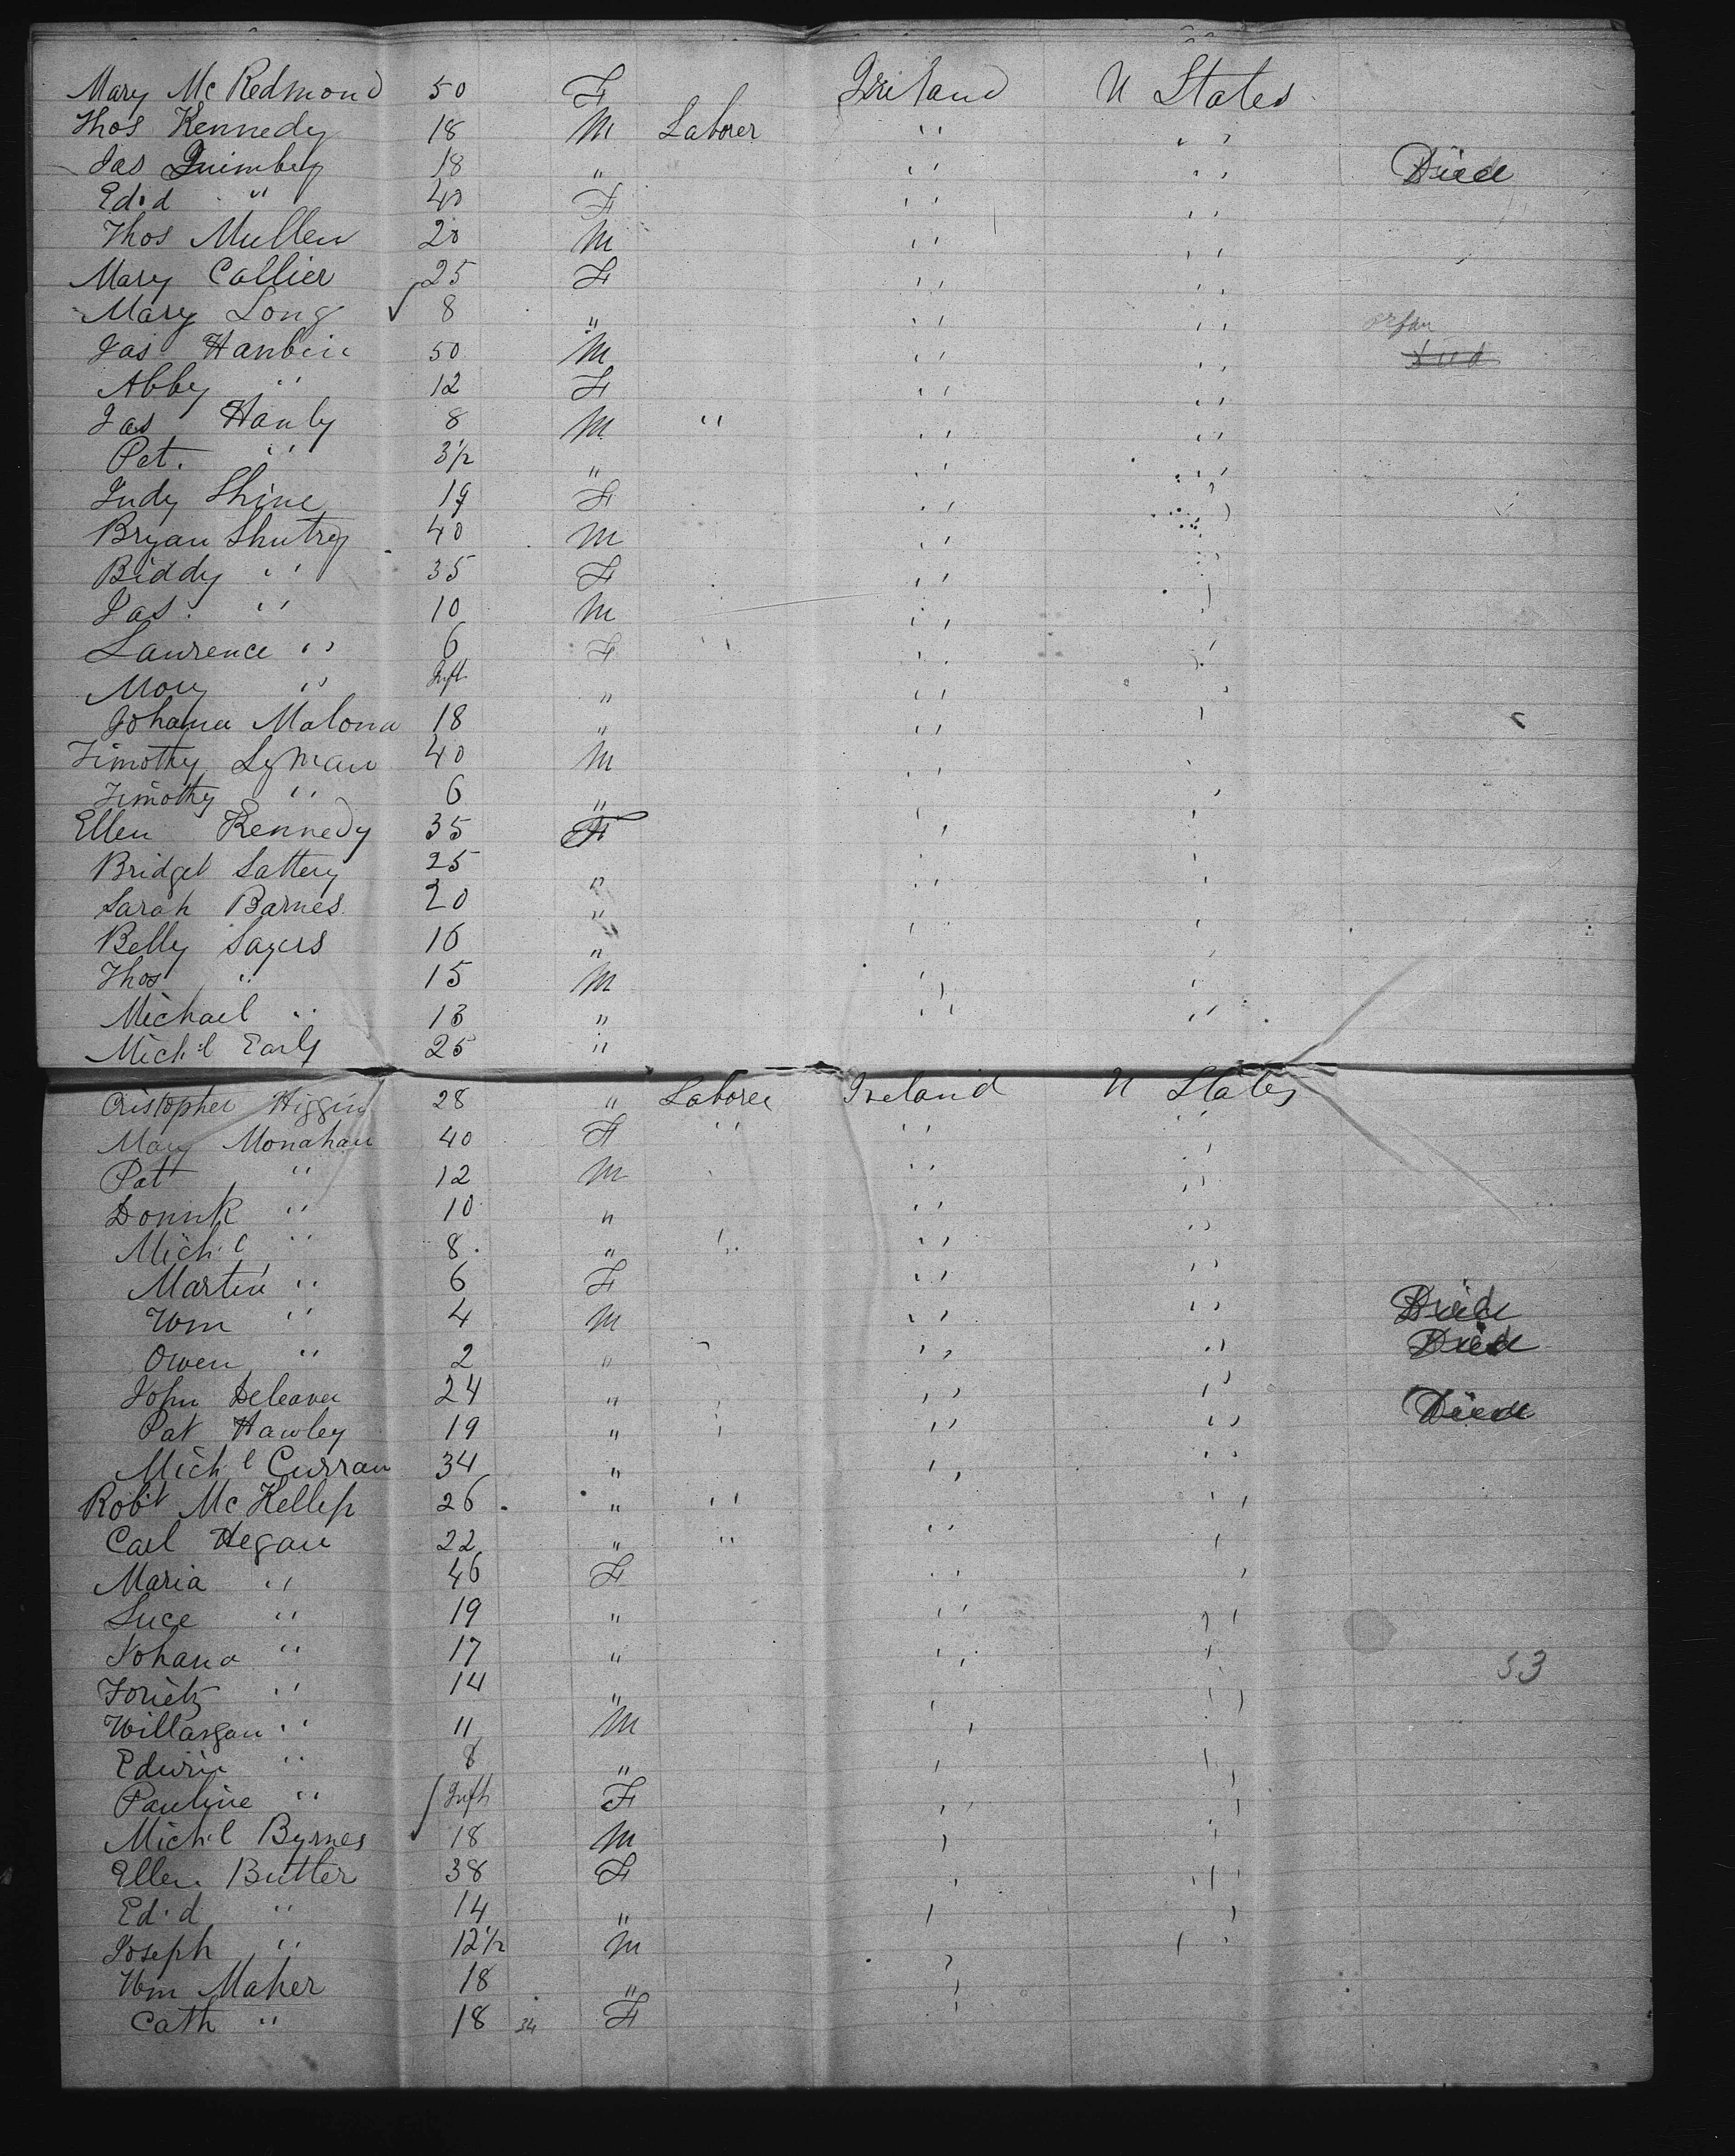 Mary Mc Redmond 50 F Ireland U States
Thos Kennedy 18 M Laborer " "
Jas Quimbey 18 " " " Died
Ed.d " 40 F " "
Thos Mullen 20 M " "
Mary Collier 25 F " "
Mary Long ✓ 8 " " "
Jas 50 M " "
Abby " 12 F " "
Jas Hanly 8 M " " "
Pet. " 3 1/2 " " "
Judy Shine 19 F " "
Bryan Shutrey 40 M " "
Biddy " 35 F " "
Jas. " 10 M " "
Lawrence " 6 F " " "
Mary " Inft " " "
Johana Malona 18 " " "
Timothy Lyman 40 M " "
Timothy " 6 " " "
Ellen Kennedy 35 F " "
Bridget Sattery 25 " " "
Sarah Barnes 20 " "
Belly Sayers 16 " " "
Thos " 15 M " "
Michael " 13 " " "
Mich:l Early 25 "
Cristopher Higgin 28 " Laborer Ireland U States
Mary Monahan 40 F " " "
Pat " 12 M " "
Donnk " 10 " " "
Mich.l " 8 " " " "
Martin " 6 F " "
Wm " 4 M " " Died
Owen " 2 " " " Died
John Deleaver 24 " " "
Pat Hawley 19 " " " Died
Mich l Curran 34 " " "
Rob.t Mc Kellip 26 " " "
Carl Hegan 22 " " " "
Maria " 46 F " "
Luce " 19 " " "
Johana " 17 " " "
" 14 " " " 53
Willargan " 11 M " "
Edwin " 8 " " "
Pauline " Inft F " "
Mich.l Byrnes 18 M " "
Ellen Butler 38 F " "
Ed.d " 14 " " "
Joseph " 12 1/2 M "
Wm Maher 18 " "
Cath " 18 34 F "